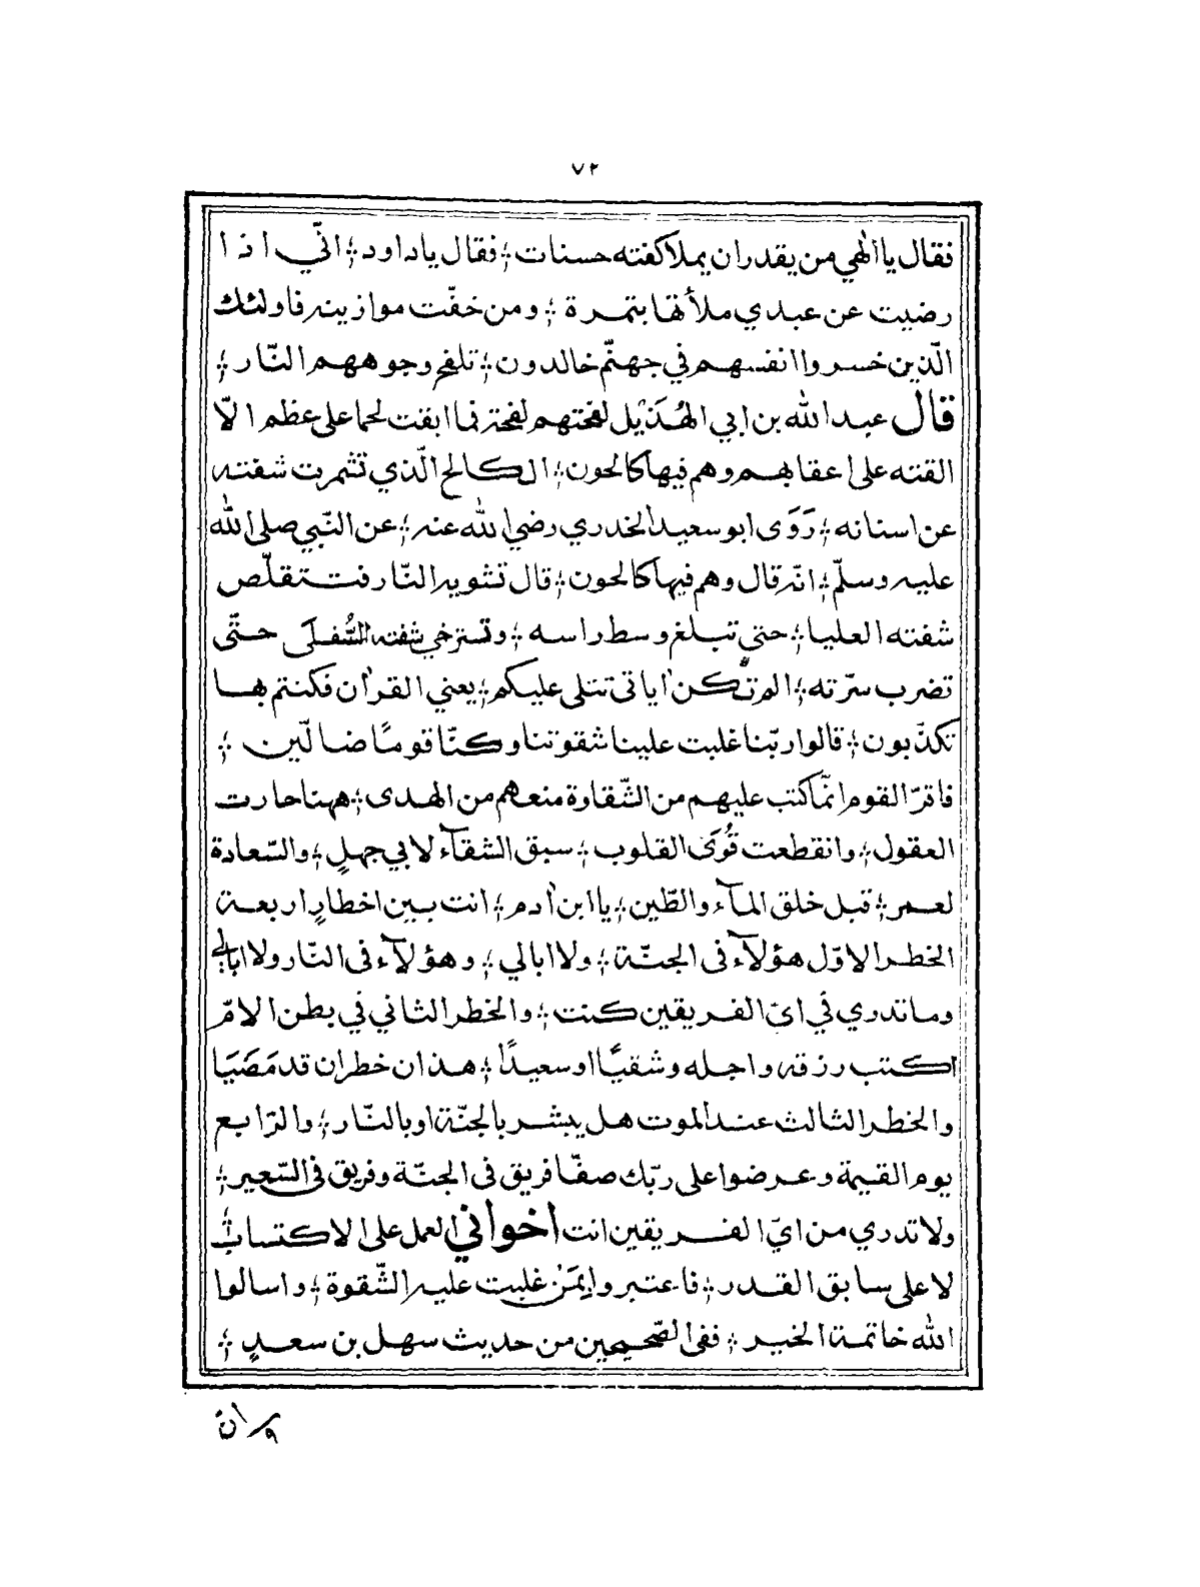 ٧٢
فقال يا الٰهي من يقدر ان يملأ كفته حسنات ؛ فقال يا داود ؛ انّي اذا
رضيت عن عبدي ملأتها بتمرة ؛ ومن خفّت موازينه فاولئك
الّذين خسروا انفسهم في جهنّم خالدون ؛ تلفح وجوههم النّار ؛
قال عبد الله بن ابي الهُذَيْل لفحتهم لفحة فما ابقت لحما على عظم الّا
القته على اعقابهم وهم فيها كالحون ؛ الكالح الّذي تشمرت شفته
عن اسنانه ؛ رَوَى ابو سعيد الخدري رضي الله عنه ؛ عن النّبي صلى الله
عليه وسلّم ؛ انّه قال وهم فيها كالحون ؛ قال تشويه النّار فتتقلّص
شفته العليا ؛ حتى تبلغ وسط راسه ؛ وتسترخي شفته السُّفلى حتّى
تضرب سرّته ؛ الم تكن اٰياتى تتلى عليكم ؛ يعني القراٰن فكنتم بها
تكذّبون ؛ قالوا ربّنا غلبت علينا شقوتنا وكنّا قومًا ضالّين ؛
فاقرّ القوم انّما كتب عليهم من الشّقاوة منعهم من الهدى ؛ ههنا حارت
العقول ؛ وانقطعت قُوَى القلوب ؛ سبق الشقآء لابي جهلٍ ؛ والسّعادة
لعمر ؛ قبل خلق المآء والطّين ؛ يا ابن اٰدم ؛ انت بين اخطارٍ اربعة
الخطر الاوّل هؤلآء فى الجنّة ؛ ولا ابالي ؛ وهؤلآء فى النّار ولا ابالي
وما تدري في ايّ الفريقين كنت ؛ والخطر الثاني في بطن الامّ
اكتب رزقه واجله وشقيًّا او سعيدًا ؛ هذان خطران قد مَضَيَا
والخطر الثالث عند الموت هل يبشر بالجنّة او بالنّار ؛ والرّابع
يوم القيمة وعرضوا على ربّك صفّا فريق فى الجنّة وفريق فى السّعير ؛
ولا تدري من ايّ الفريقين انت اخواني العمل على الاكتساب ؛
لا على سابق القدر ؛ فاعتبروا بمَنْ غلبت عليه الشّقوة ؛ واسالوا
الله خاتمة الخير ؛ ففى الصّحيحين من حديث سهل بن سعدٍ ؛